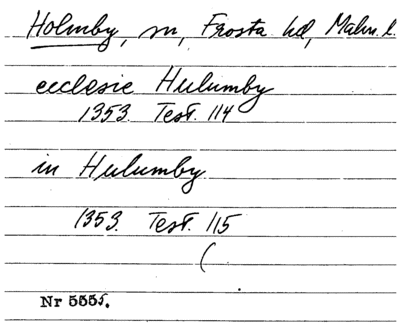 Holmby, sn, Frosta hd, Malm. l.
ecclesie Hulumby
1353. Test. 114
in Hulumby
1353. Test. 115
(
Nr 5555.